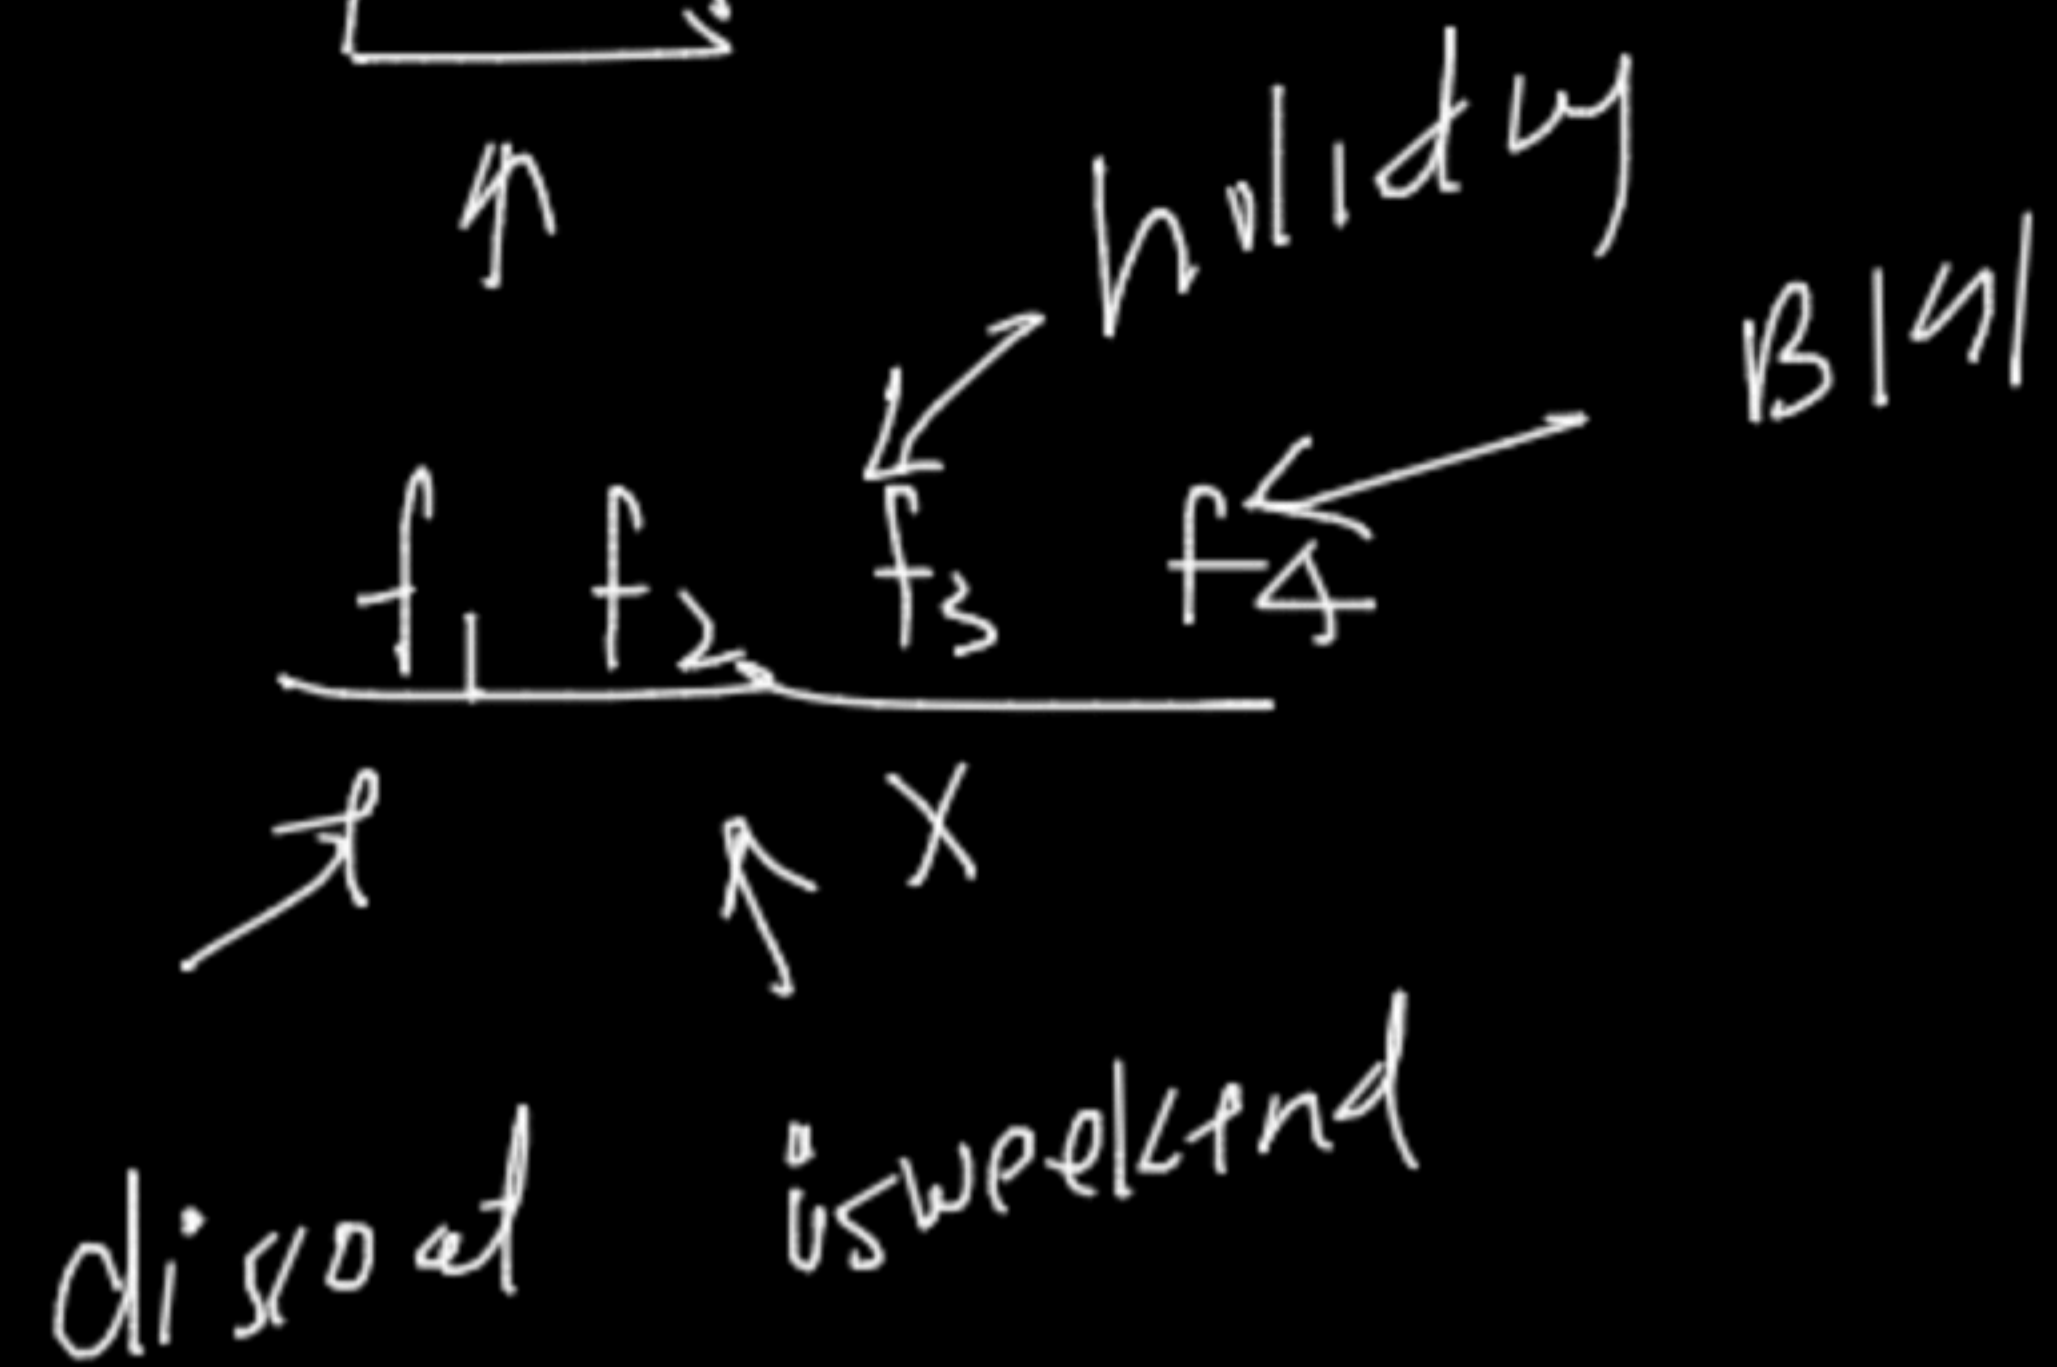 holiday
f1 f2 f3 f4
X
discoat isweekend